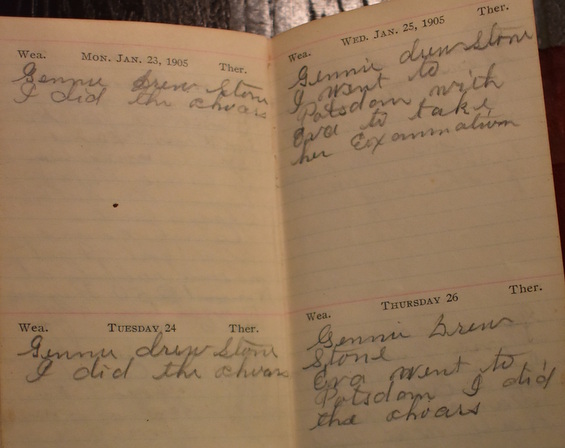 Wea. MON. JAN. 23, 1905 Ther.
Gennie drew Stone
I did the choars
Wea. TUESDAY 24 Ther.
Gennie drew Stone
I did the choars
Wea. WED. JAN. 25, 1905 Ther.
Gennie drew Stone
I went to
Potsdam with
Eva to take
her Examination
Wea. THURSDAY 26 Ther.
Gennie drew
Stone
Eva went to
Potsdam I did
the choars